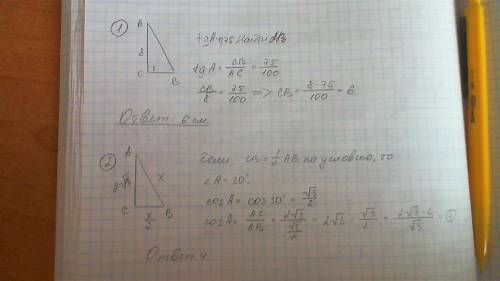 ① A
8
C
B
tgA=0,75 Найти AB
tgA = CB/AC = 75/100
CB/8 = 75/100 => CB = 8·75/100 = 6.
Ответ: 6 см.
② A
2√3
x
C
B
x/2
Если CB = 1/2 AB по условию, то
∠A = 30°.
cosA = cos30° = √3/2
cosA = AC/AB = 2√3/(√3/2) = 2√3 : √3/2 = 2√3·2/√3 = ④
Ответ 4